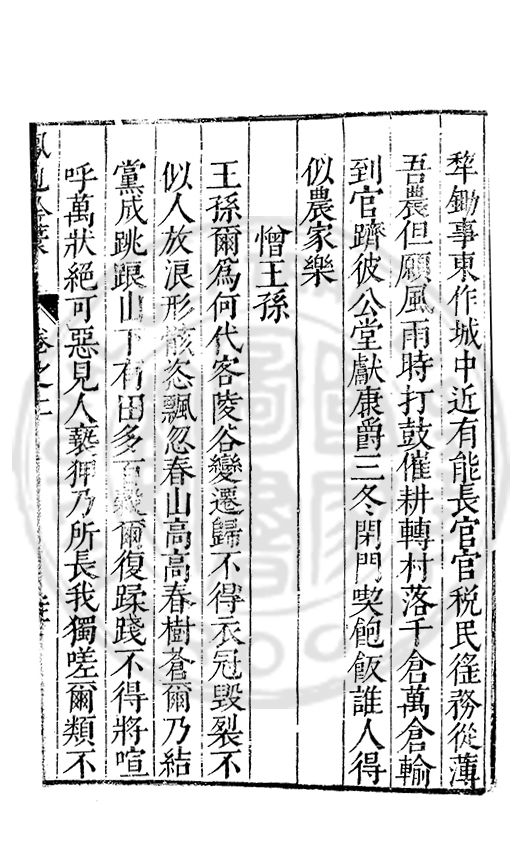 犂鋤事東作城中近有能長官官税民徭務從薄
吾農但願風雨時打鼓催耕轉村落千倉萬倉輸
到官躋彼公堂獻康爵三冬閉門喫飽飯誰人得
似農家樂
憎王孫
王孫爾爲何代客陵谷變遷歸不得衣冠毀裂不
似人放浪形骸恣飄忽春山高高春樹蒼爾乃結
黨成跳踉山下有田多百穀爾復蹂踐不得將喧
呼萬狀絶可惡見人褻狎乃所長我獨嗟爾類不
卷之二